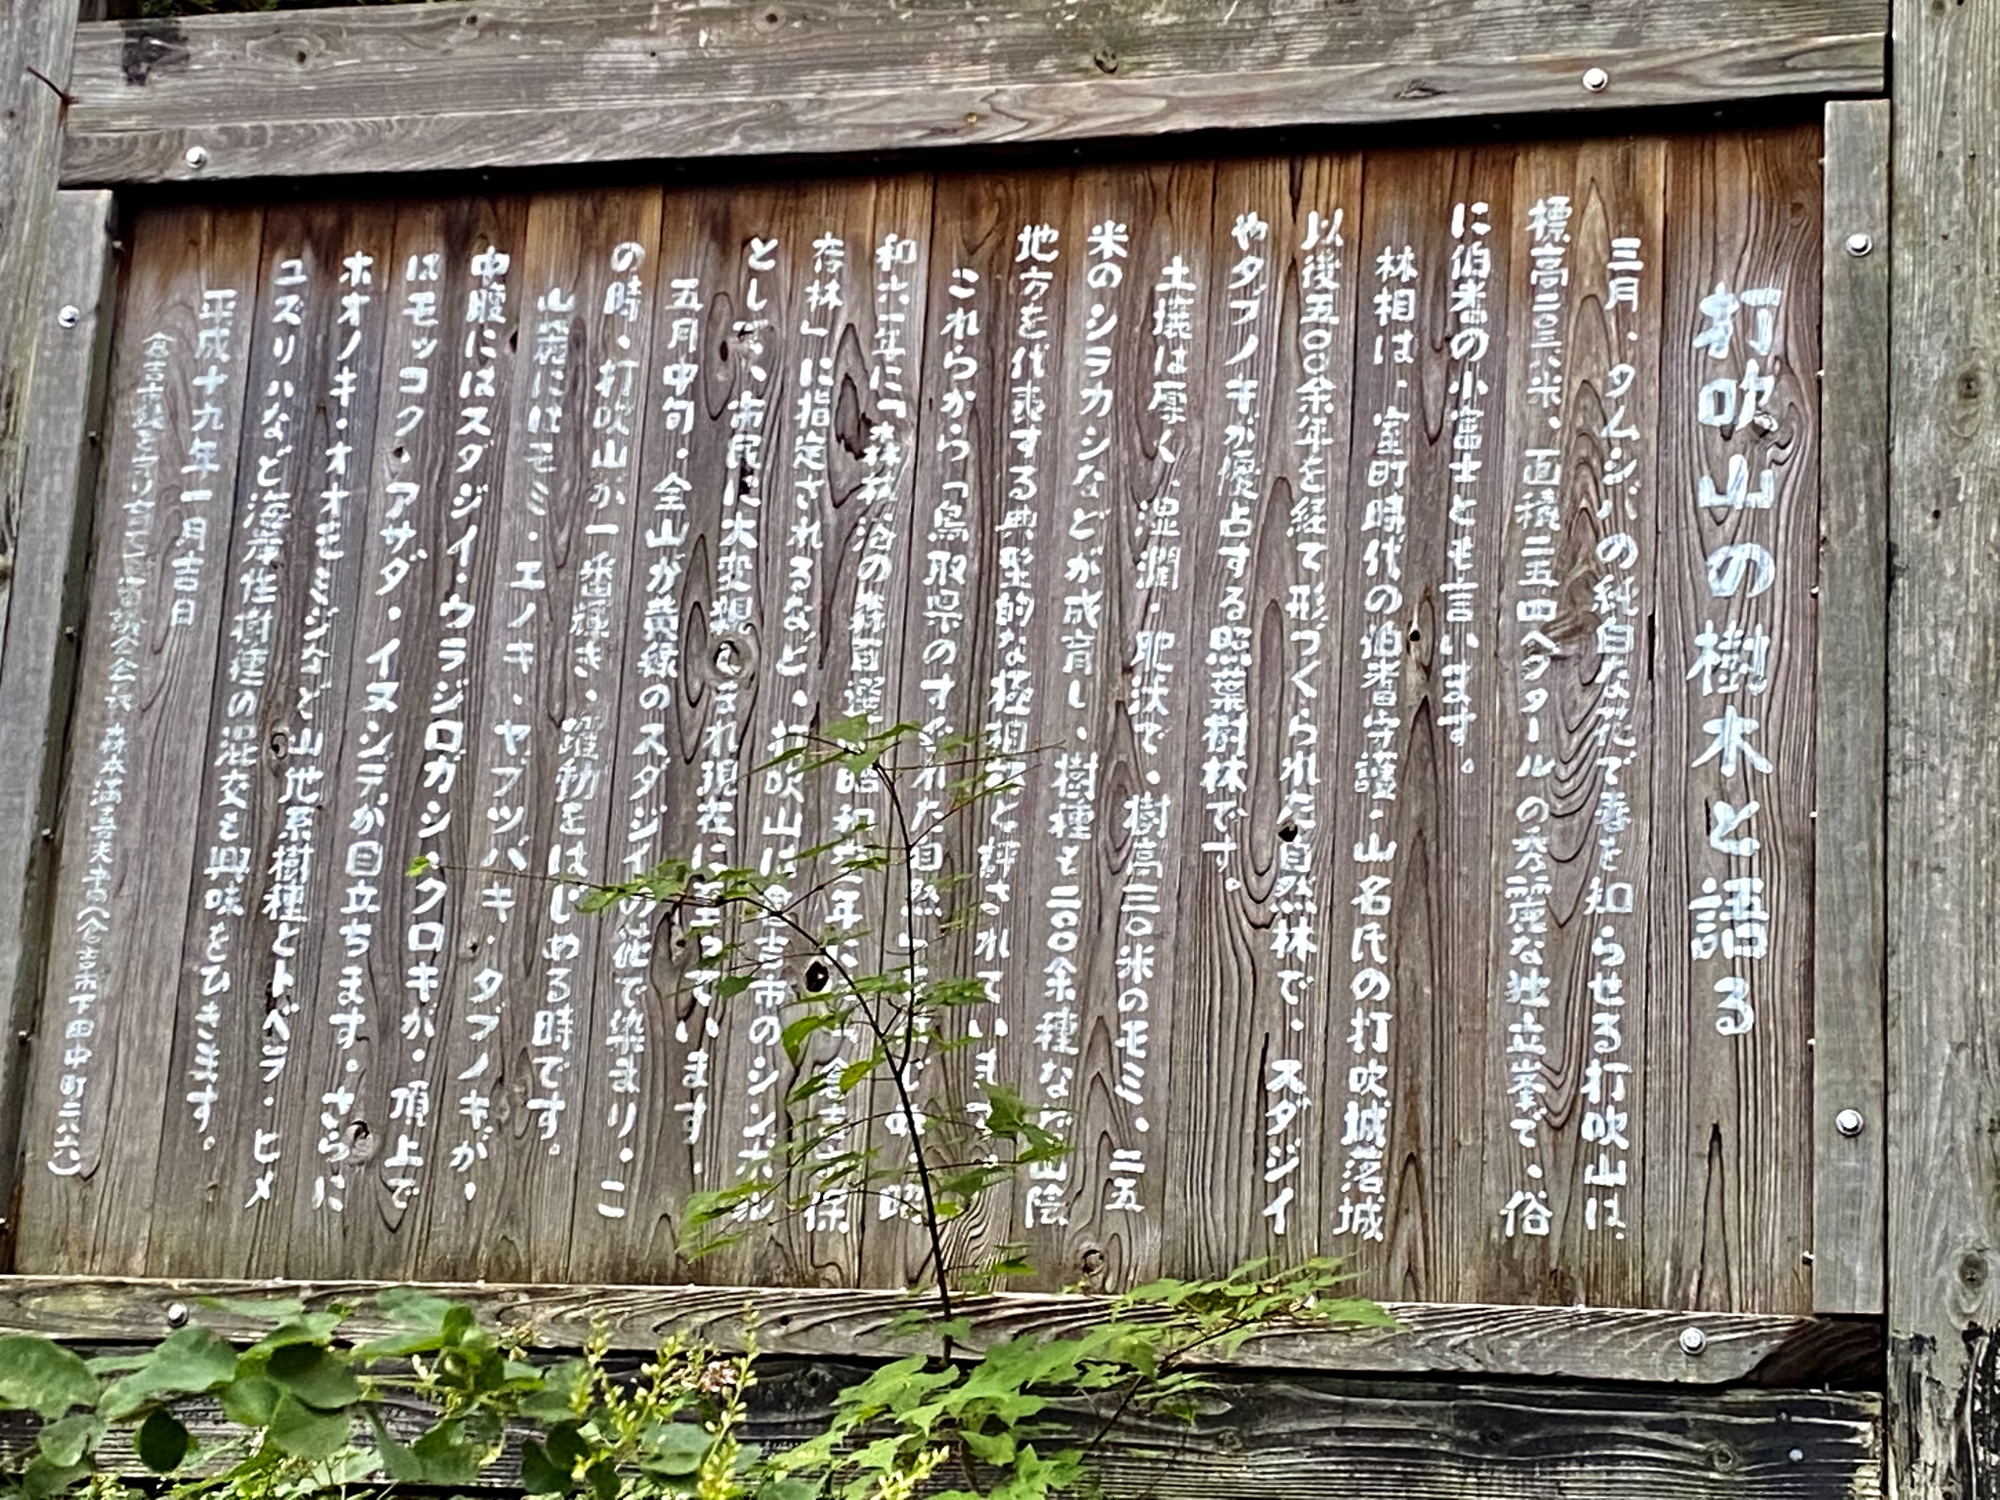 打吹山の樹木と語る
三月、タムシバの純白な花で春を知らせる打吹山は、
標高二〇三、八米、面積二五四ヘクタールの秀麗な独立峯で、俗
に伯耆の小富士とも言います。
林相は、室町時代の伯耆守護・山名氏の打吹城落城
以後五〇〇余年を経て形づくられた自然林で、スダジイ
やタブノキが優占する照葉樹林です。
土壌は厚く、湿潤・肥沃で、樹高三〇米のモミ、二五
米のシラカシなどが成育し、樹種も二〇〇余種など山陰
地方を代表する典型的な極相林と評されています。
これらから「鳥取県のすぐれた自然 昭
和六一年に「森林浴の森百選 昭和 年 倉吉 保
存林」に指定されるなど、打吹山は倉吉市のシンボル
として、市民に大変親しまれ現在に至っています。
五月中旬、全山が黄緑のスダジイの花で染まり、こ
の時、打吹山が一番輝き、躍動をはじめる時です。
山麓にはモミ・エノキ・ヤブツバキ・タブノキが、
中腹にはスダジイ・ウラジロガシ・クロキが、頂上で
はモッコク・アサダ・イヌシデが目立ちます。さらに
ホオノキ・オオモミジなど山地系樹種とトベラ・ヒメ
ユズリハなど海岸性樹種の混交も興味をひきます。
平成十九年一月吉日
(倉吉市緑を守り育てる 委員会会長 森本満喜夫書(倉吉市下田中町 )